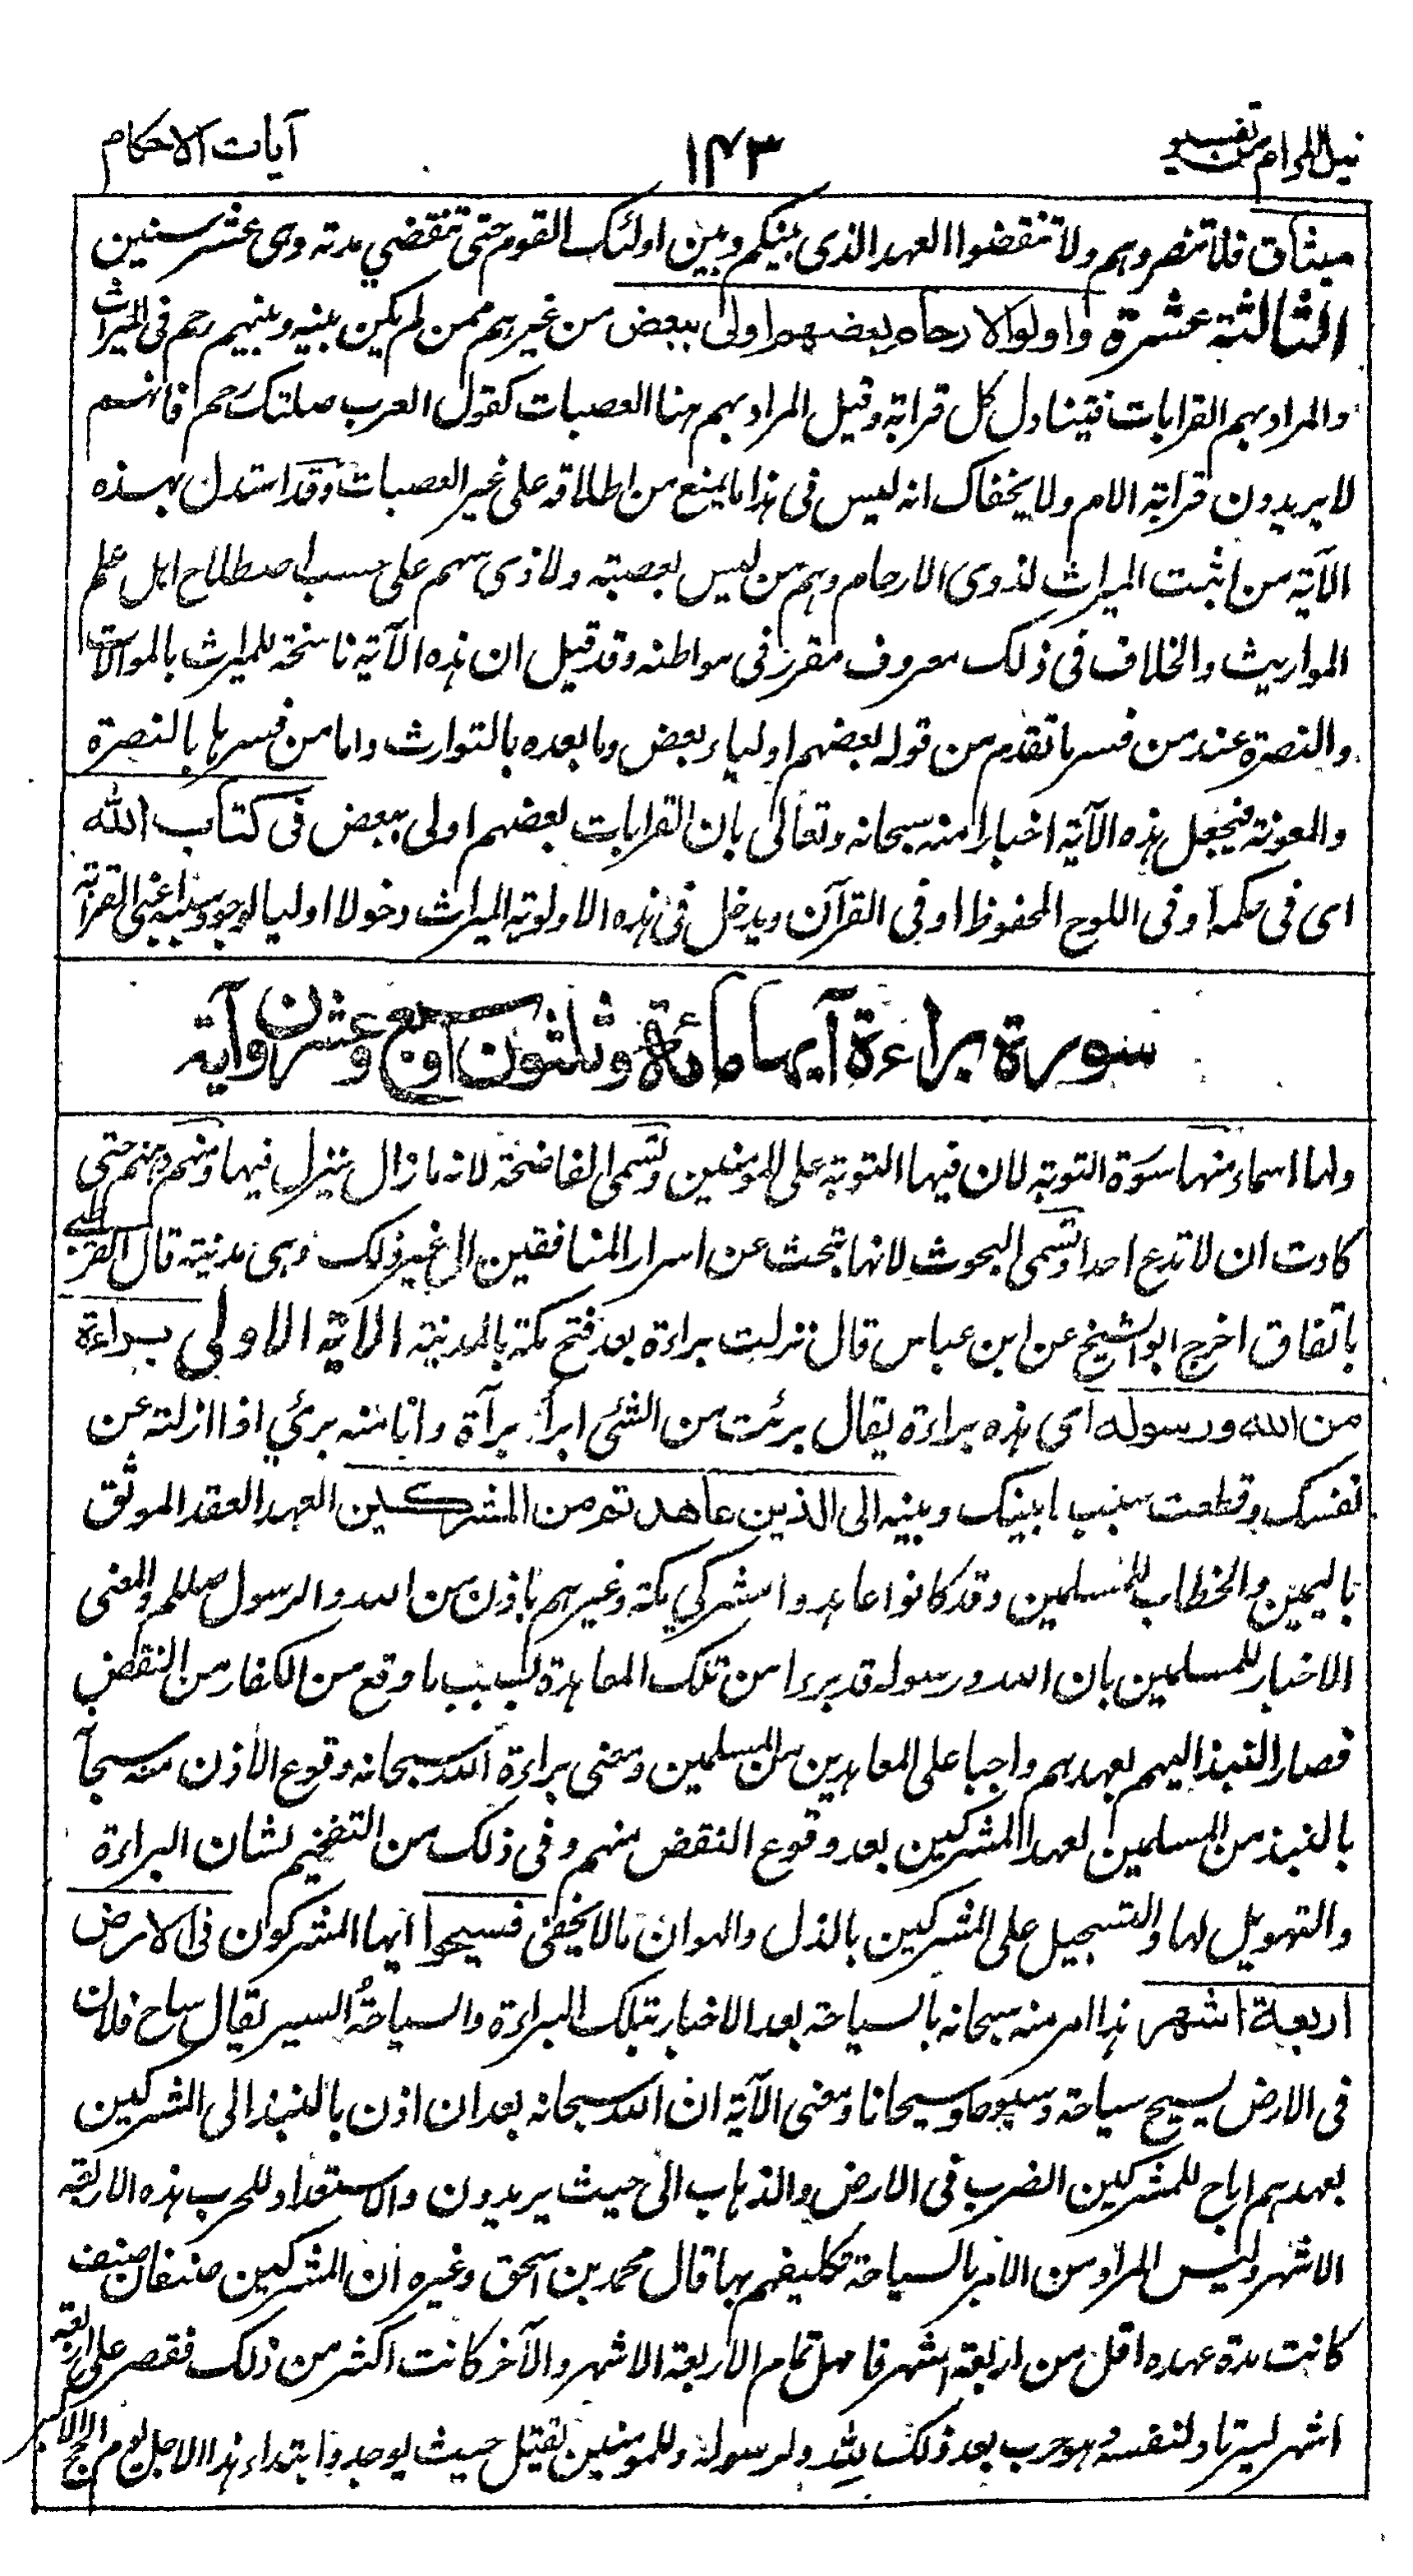 نيل المرام من تفسير ١٤٣ آيات الاحكام
ميثاق فلا تنصروهم ولا تنقضوا العهد الذى بينكم وبين اولئك القوم حتى تنقضي مدته وهى عشر سنين
الثالثة عشرة واولوا الارحام بعضهم اولى ببعض من غيرهم ممن لم يكن بينه وبينهم رحم فى الميراث
والمراد بهم القرابات فيتناول كل قرابة وقيل المراد بهم هنا العصبات كقول العرب صلتك رحم فانهم
لا يريدون قرابة الام ولا يخفاك انه ليس فى هذا ما يمنع من اطلاقه على غير العصبات وقد استدل بهذه
الآية من اثبت الميراث لذوى الارحام وهم من ليس بعصبة ولا ذى سهم على حسب اصطلاح اهل علم
المواريث والخلاف فى ذلك معروف مقرر فى مواطنه وقد قيل ان هذه الآية ناسخة للميراث بالموالات
والنصرة عند من فسر ما تقدم من قوله بعضهم اولياء بعض وما بعده بالتوارث واما من فسرها بالنصرة
والمعونة فيجعل هذه الآية اخبارا منه سبحانه وتعالى بان القرابات بعضهم اولى ببعض فى كتاب الله
اى فى حكمه او فى اللوح المحفوظ او فى القرآن ويدخل فى هذه الاولوية الميراث دخولا اوليا لوجود سببه اعنى القرابة
سورة براءة آيها مائة وثلثون او سبع وعشرون آية
ولها اسماء منها سورة التوبة لان فيها التوبة على المؤمنين وتسمى الفاضحة لانه ما زال ينزل فيها ومنهم ومنهم حتى
كادت ان لا تدع احدا وتسمى البحوث لانها تبحث عن اسرار المنافقين الى غير ذلك وهى مدنية قال القرطبى
باتفاق اخرج ابو الشيخ عن ابن عباس قال نزلت براءة بعد فتح مكة بالمدينة الآية الاولى براءة
من الله ورسوله اى هذه براءة يقال برئت من الشئ ابرأ برآة وانا منه برئ اذا ازلته عن
نفسك وقطعت سبب ما بينك وبينه الى الذين عاهدتم من المشركين العهد العقد الموثق
باليمين والخطاب للمسلمين وقد كانوا عاهدوا مشركي مكة وغيرهم باذن من الله والرسول صللم والمعنى
الاخبار للمسلمين بان الله ورسوله قد برءا من تلك المعاهدة بسبب ما وقع من الكفار من النقض
فصار النبذ اليهم بعهدهم واجبا على المعاهدين من المسلمين ومعنى براءة الله سبحانه وقوع الاذن منه سبحا
بالنبذ من المسلمين لعهد المشركين بعد وقوع النقض منهم وفى ذلك من التفخيم لشان البراءة
والتهويل لها والتسجيل على المشركين بالذل والهوان ما لا يخفى فسيحوا ايها المشركون فى الارض
اربعة اشهر هذا امر منه سبحانه بالسياحة بعد الاخبار بتلك البراءة والسياحة السير يقال ساح فلان
فى الارض يسيح سياحة وسيوحا وسيحانا ومعنى الآية ان الله سبحانه بعد ان اذن بالنبذ الى المشركين
بعهدهم اباح للمشركين الضرب فى الارض والذهاب الى حيث يريدون والاستعداد للحرب هذه الاربعة
الاشهر وليس المراد من الامر بالسياحة تكليفهم بها قال محمد بن اسحق وغيره ان المشركين صنفان صنف
كانت مدة عهده اقل من اربعة اشهر فامهل تمام الاربعة الاشهر والآخر كانت اكثر من ذلك فقصر على اربعة
اشهر ليرتاد لنفسه وهو حرب بعد ذلك لله ولرسوله وللمومنين يقتل حيث يوجد وابتداء هذا الاجل يوم الحج الاكبر